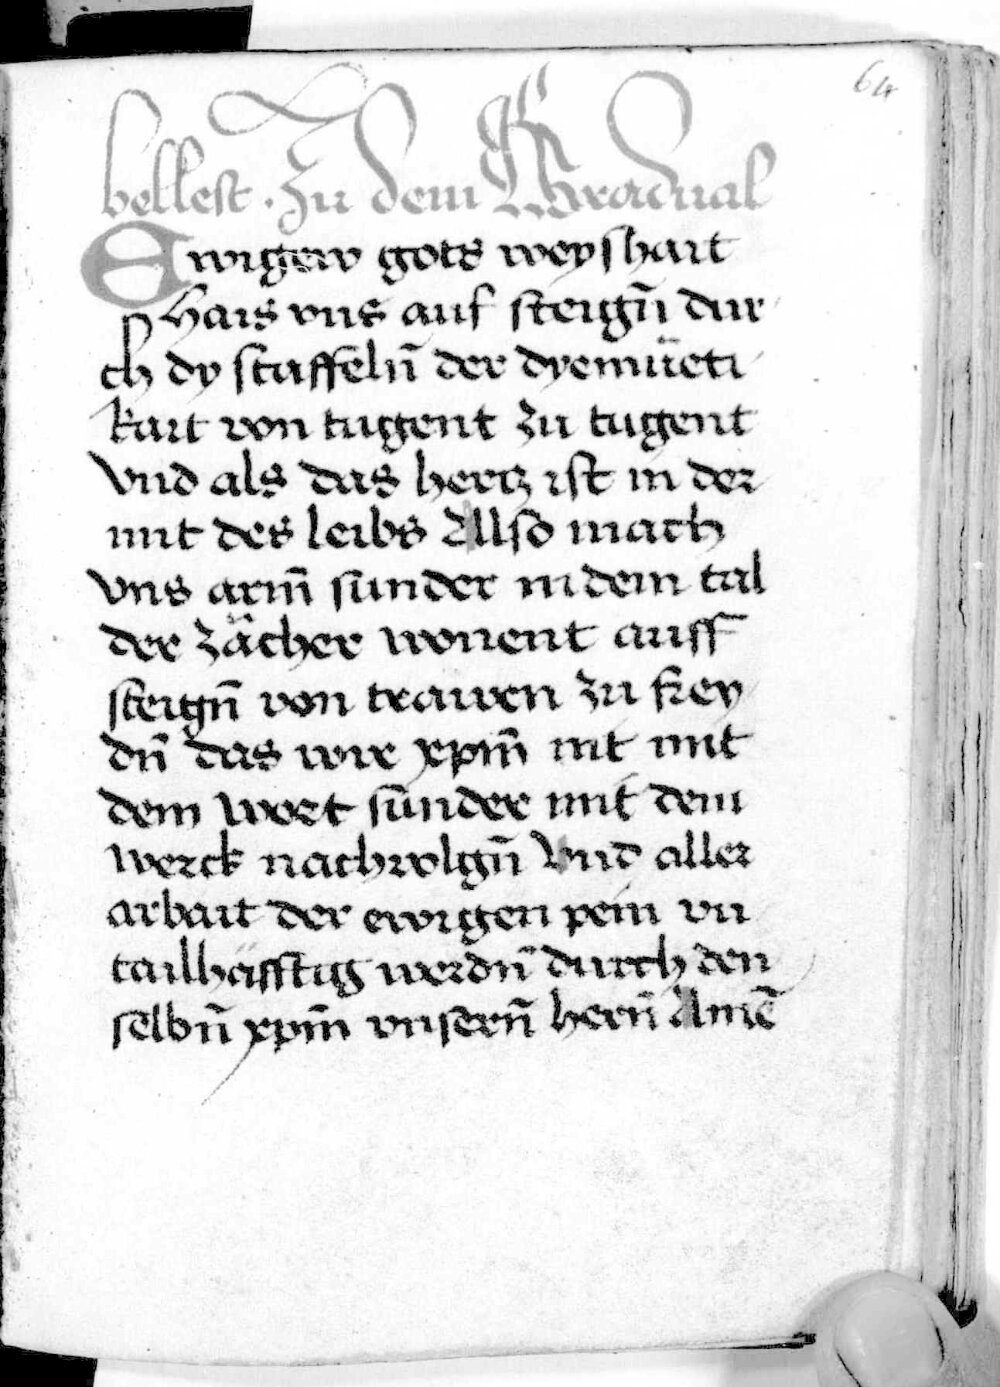 64
bellest · Zu dem Gradual
Ewigew gots weyshait
Hais vns auf steigñ dur
ch dy staffelñ der dyemüeti
kait von tugent zu tugent
Vnd als das hertz ist in der
mit des leibs Allso mach
vns armñ sunder in dem tal
der zächer wonent auff
steigñ von trawren zu frey
dñ das wir xpm̄ nit mit
dem wort sunder mit dem
werck nachvolgñ Vnd aller
arbait der ewigen pein vn
tailhäfftig werdñ durch den
selbñ xpm̄ vnserñ herñ Amē